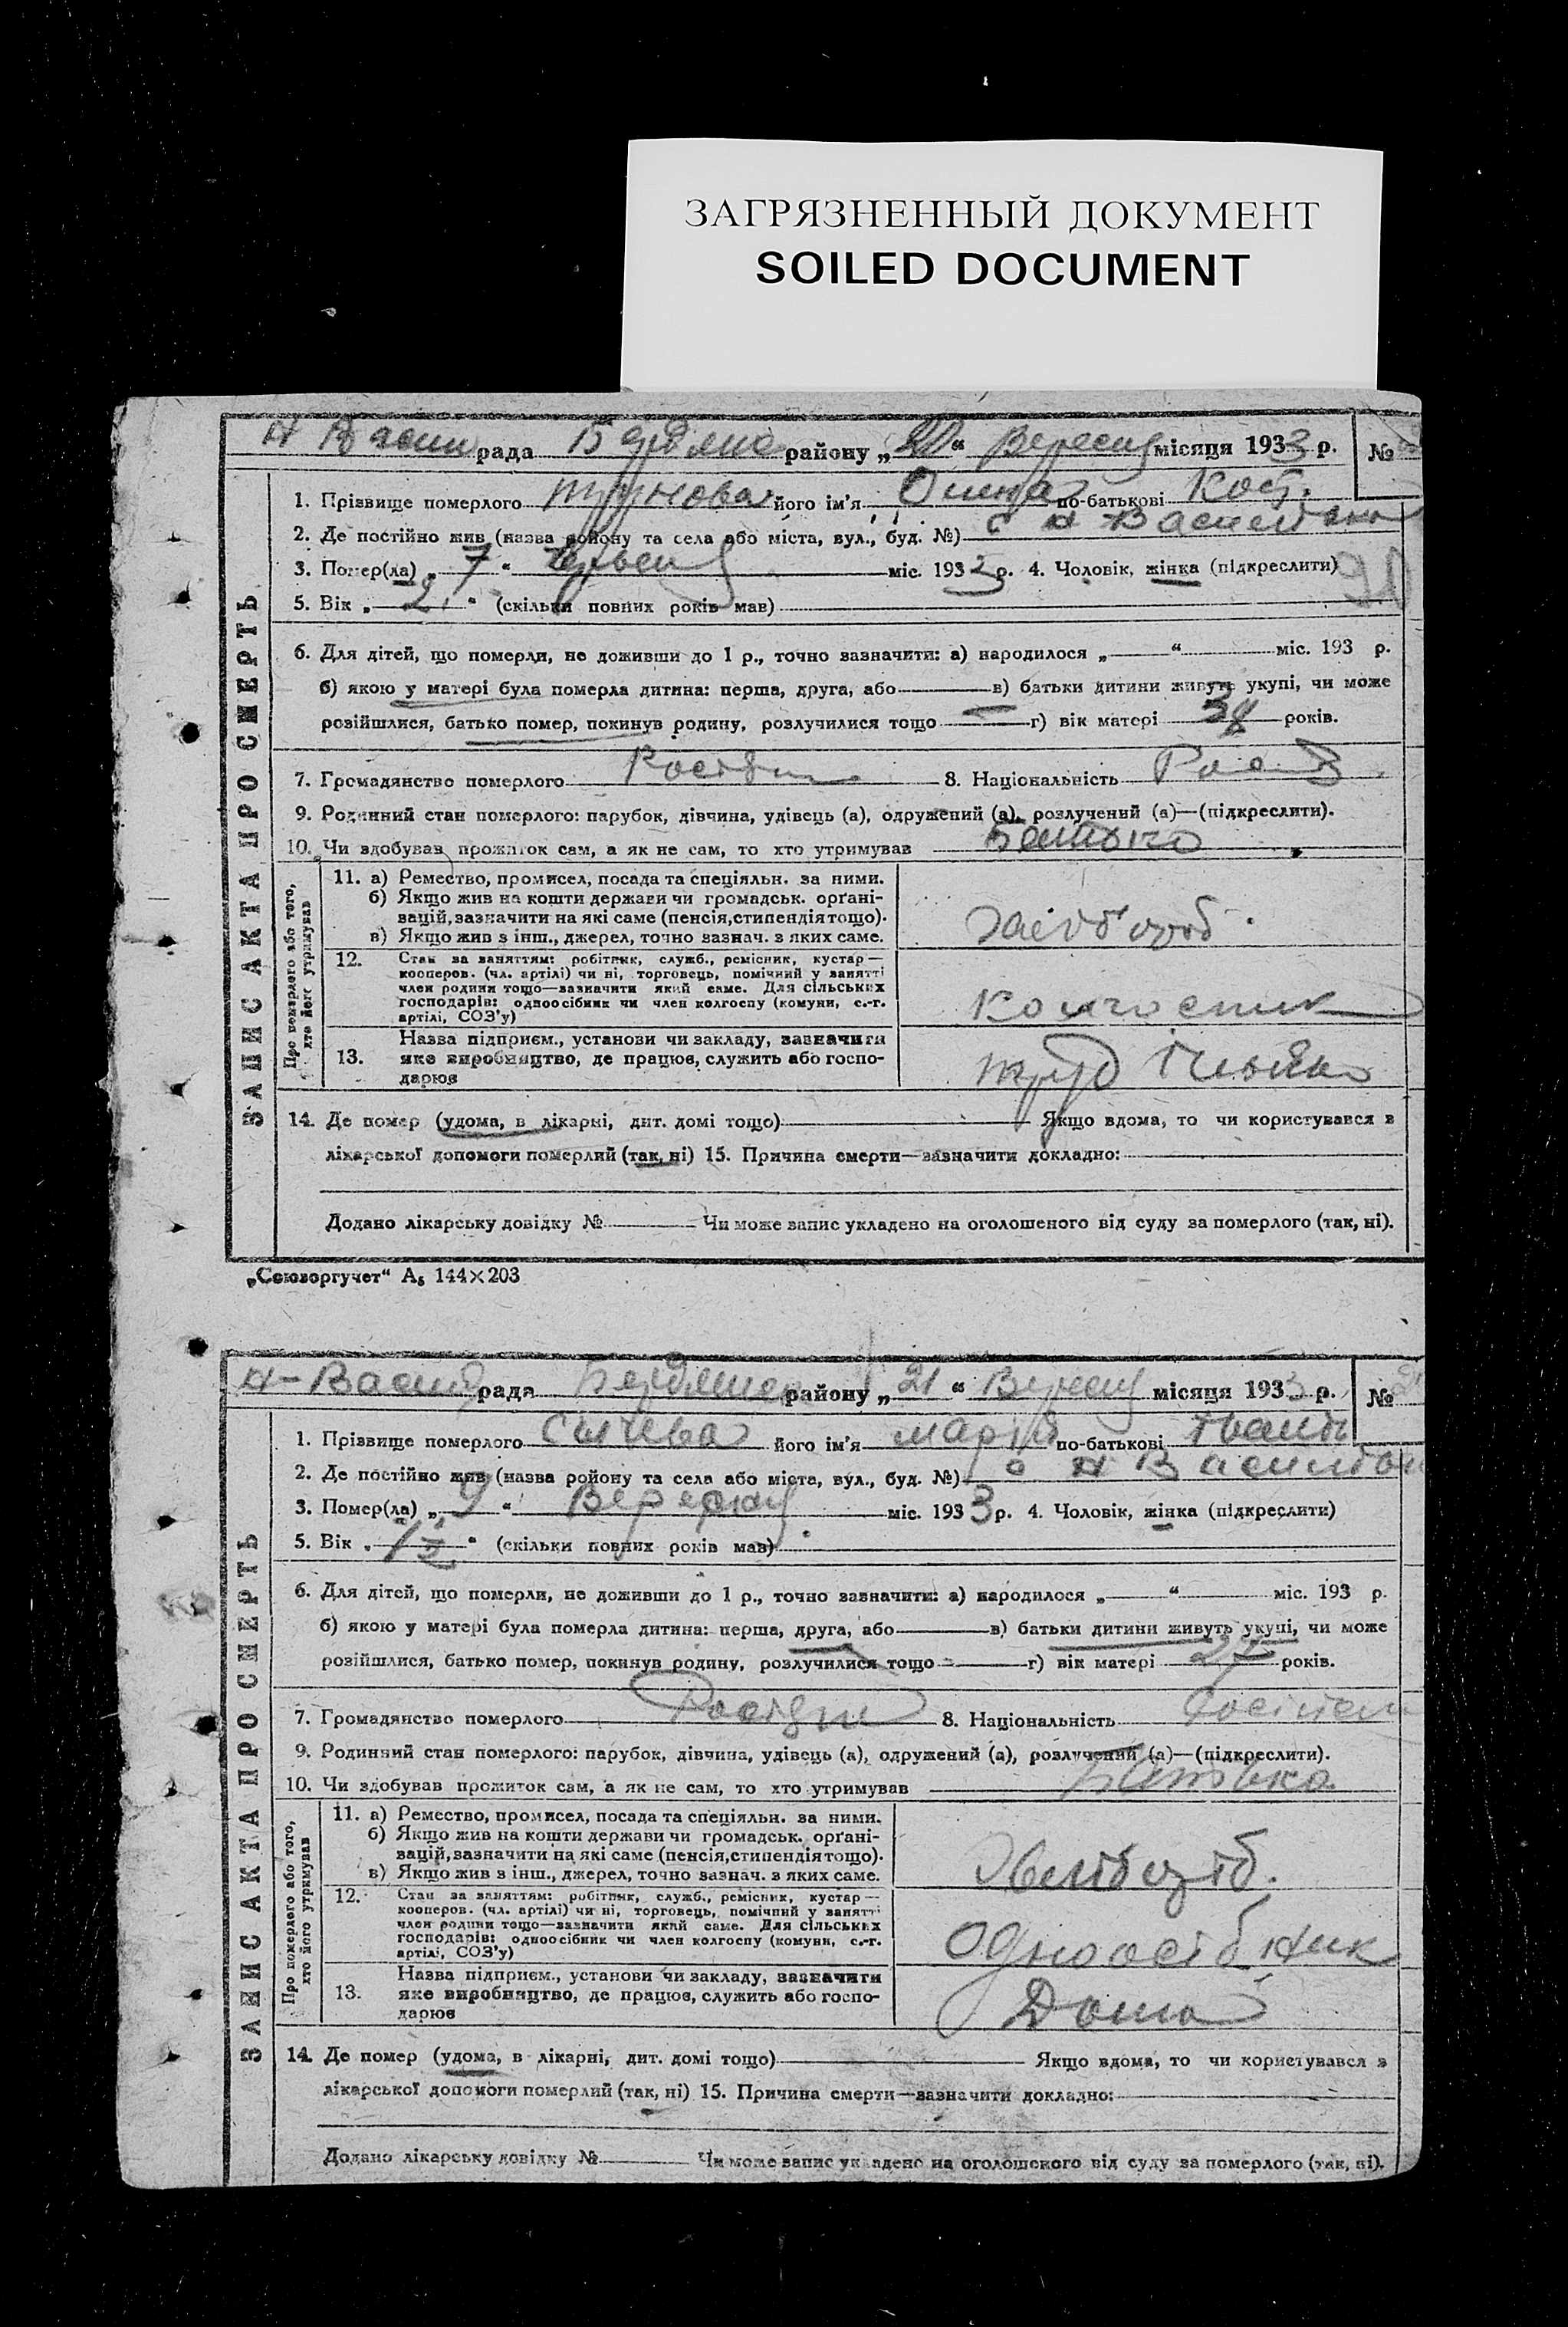 ЗАГРЯЗНЕННЫЙ ДОКУМЕНТ
SOILED DOCUMENT
рада района „20“ Вересня місяця 1933 р. №
ЗАПИС АКТА ПРО СМЕРТЬ
1. Прізвище померлого його ім'я по-батькові Кост.
2. Де постійно жив (назва району та села або міста, вул., буд. №) с Н Василівка
3. Помер(ла) „7“ міс. 1933 р. 4. Чоловік, жінка (підкреслити)
5. Вік „2“ (скільки повних років мав)
6. Для дітей, що померли, не доживши до 1 р., точно зазначити: а) народилося „ “ міс. 193 р.
б) якою у матері була померла дитина: перша, друга, або в) батьки дитини живуть укупі, чи може
розійшлися, батько помер, покинув родину, розлучилися тощо г) вік матері 38 років.
7. Громадянство померлого 8. Національність
9. Родинний стан померлого: парубок, дівчина, удівець (а), одружений (а), розлучений (а)—(підкреслити).
10. Чи здобував прожиток сам, а як не сам, то хто утримував Батько
Про померлого або того, хто його утримував
11. а) Ремество, промисел, посада та спеціяльн. за ними.
б) Якщо жив на кошти держави чи громадськ. орґані-
зацій, зазначити на які саме (пенсія, стипендія тощо).
в) Якщо жив з інш., джерел, точно зазнач. з яких саме.
12. Стан за заняттям: робітник, служб., ремісник, кустар—
кооперов. (чл. артілі) чи ні, торговець, помічний у занятті
член родини тощо—зазначити який саме. Для сільських
господарів: одноосібник чи член колгоспу (комуни, с.-г.
артілі, СОЗ'у)
Колгоспник
13. Назва підприєм., установи чи закладу, зазначити
яке виробництво, де працює, служить або госпо-
дарює
14. Де помер (удома, в лікарні, дит. домі тощо) Якщо вдома, то чи користувався з
лікарської допомоги померлий (так, ні) 15. Причина смерти—зазначити докладно:
Додано лікарську довідку № Чи може запис укладено на оголошеного від суду за померлого (так, ні).
„Союзоргучет“ А₅ 144×203
Н-Васил рада району „21“ Вересня місяця 1933 р. №
ЗАПИС АКТА ПРО СМЕРТЬ
1. Прізвище померлого Сычева його ім'я Марія по-батькові Іван
2. Де постійно жив (назва району та села або міста, вул., буд. №) с Н Василівка
3. Помер(ла) „9“ Вересня міс. 1933 р. 4. Чоловік, жінка (підкреслити)
5. Вік „1½“ (скільки повних років мав)
6. Для дітей, що померли, не доживши до 1 р., точно зазначити: а) народилося „ “ міс. 193 р.
б) якою у матері була померла дитина: перша, друга, або в) батьки дитини живуть укупі, чи може
розійшлися, батько помер, покинув родину, розлучилися тощо г) вік матері 27 років.
7. Громадянство померлого 8. Національність
9. Родинний стан померлого: парубок, дівчина, удівець (а), одружений (а), розлучений (а)—(підкреслити).
10. Чи здобував прожиток сам, а як не сам, то хто утримував Батько
Про померлого або того, хто його утримував
11. а) Ремество, промисел, посада та спеціяльн. за ними.
б) Якщо жив на кошти держави чи громадськ. орґані-
зацій, зазначити на які саме (пенсія, стипендія тощо).
в) Якщо жив з інш., джерел, точно зазнач. з яких саме.
12. Стан за заняттям: робітник, служб., ремісник, кустар—
кооперов. (чл. артілі) чи ні, торговець, помічний у занятті
член родини тощо—зазначити який саме. Для сільських
господарів: одноосібник чи член колгоспу (комуни, с.-г.
артілі, СОЗ'у)
Одноосібник
13. Назва підприєм., установи чи закладу, зазначити
яке виробництво, де працює, служить або госпо-
дарює
Дома
14. Де помер (удома, в лікарні, дит. домі тощо) Якщо вдома, то чи користувався з
лікарської допомоги померлий (так, ні) 15. Причина смерти—зазначити докладно:
Додано лікарську довідку № Чи може запис укладено на оголошеного від суду за померлого (так, ні).